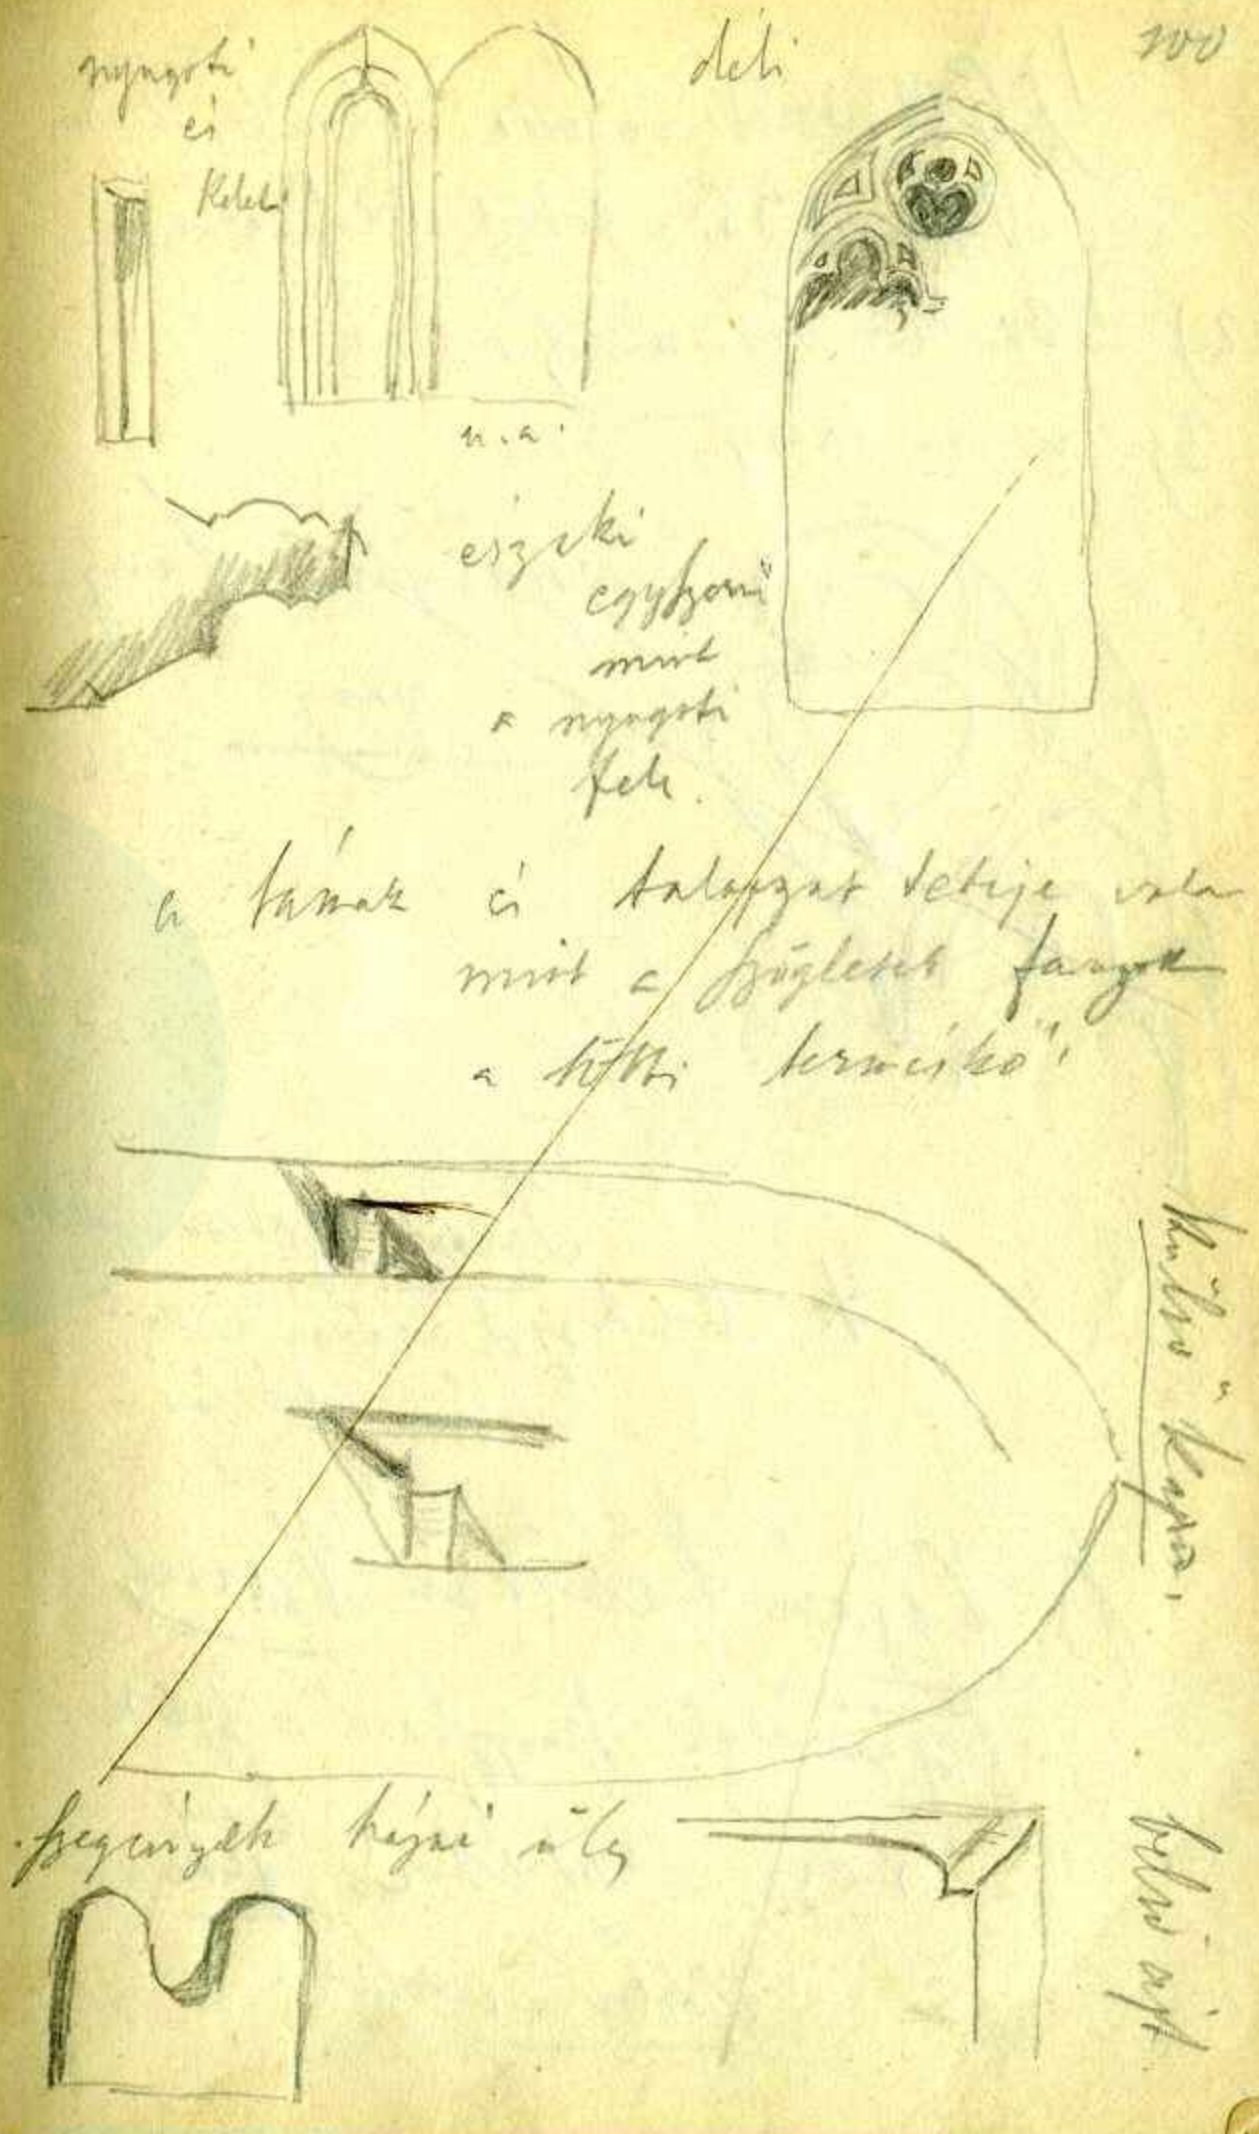 100
nyugoti
és
Keleti
déli
u. a.
északi
egyszerű
mint
a nyugoti
fele.
a támak és talapzat teteje vala
mint a szögletek faragott
a többi terméskő.
Külső kapu.
szegények
belső ajt